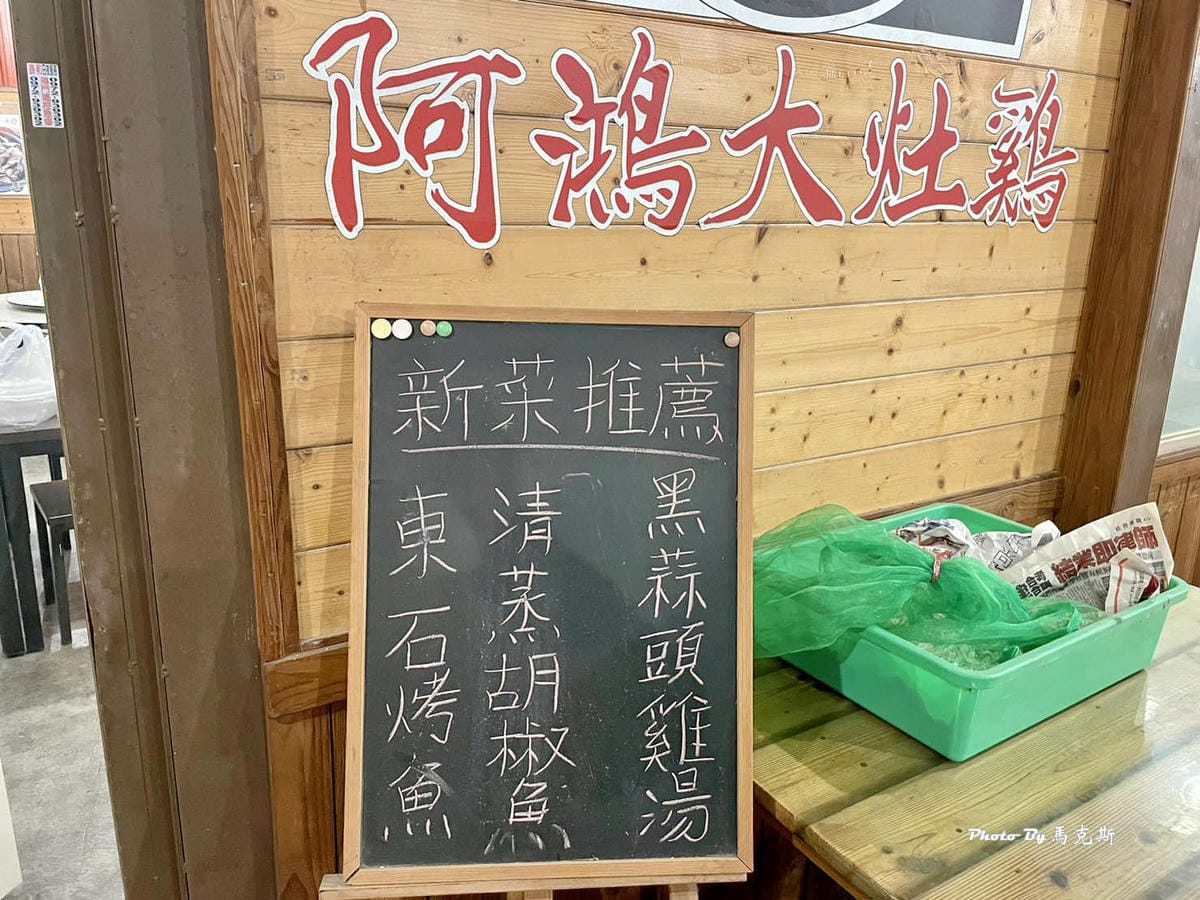 阿鴻大灶鷄
新菜推薦
黑蒜頭雞湯
清蒸胡椒魚
東石烤魚
Photo By 馬克斯